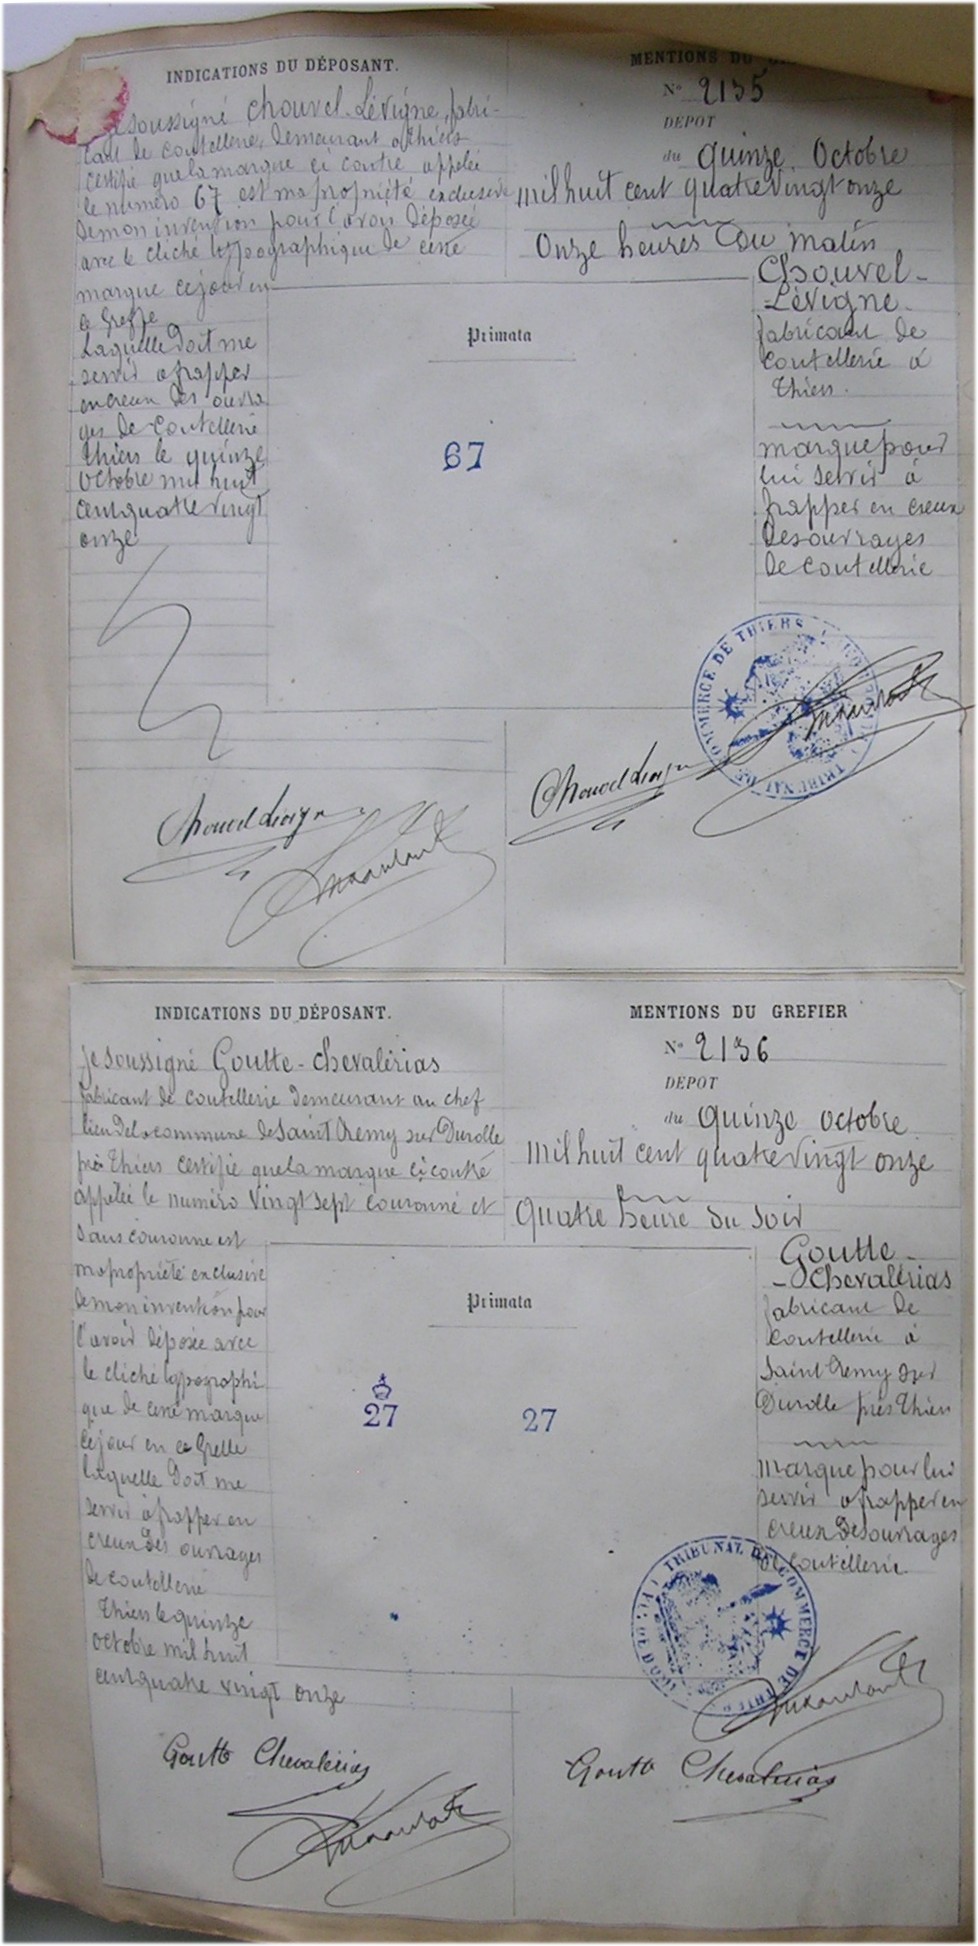 INDICATIONS DU DÉPOSANT.
Je soussigné Chouvel-Lévigne, fabri-
cant de coutellerie, demeurant a Thiers
certifie que la marque ci contre appelée
le numéro 67 est ma propriété exclusive
de mon invention pour l'avoir déposée
avec le cliché typographique de cette
marque ce jour en
ce Greffe
Laquelle doit me
servir a frapper
en creux des ouvra
ges de coutellerie
Thiers le quinze
octobre mil huit
cent quatre vingt
onze
MENTIONS DU
N° 2135
DEPOT
du quinze Octobre
mil huit cent quatre vingt onze
Onze heures du matin
Primata
67
Chouvel-
-Lévigne-
fabricant de
coutellerie à
Thiers.
marque pour
lui servir à
frapper en creux
des ouvrages
de coutellerie
TRIBUNAL DE COMMERCE DE THIERS
INDICATIONS DU DÉPOSANT.
Je soussigné Goutte-Chevalérias
fabricant de coutellerie demeurant au chef
lieu de la commune de Saint Remy sur Durolle
près Thiers certifie que la marque ci contre
appelée le numéro vingt sept couronné et
sans couronne est
ma propriété exclusive
de mon invention pour
l'avoir déposée avec
le cliché typographi
que de cette marque
ce jour en ce Greffe
laquelle doit me
servir à frapper en
creux des ouvrages
de coutellerie
Thiers le quinze
octobre mil huit
cent quatre vingt onze
MENTIONS DU GREFIER
N° 2136
DEPOT
du quinze octobre
mil huit cent quatre vingt onze
quatre heure du soir
Primata
27
27
Goutte-
-Chevalérias
fabricant de
coutellerie à
Saint Remy sur
Durolle près Thiers
marque pour lui
servir a frapper en
creux des ouvrages
de coutellerie.
TRIBUNAL DE COMMERCE DE THIERS
Goutte Chevalérias
Goutte Chevalérias